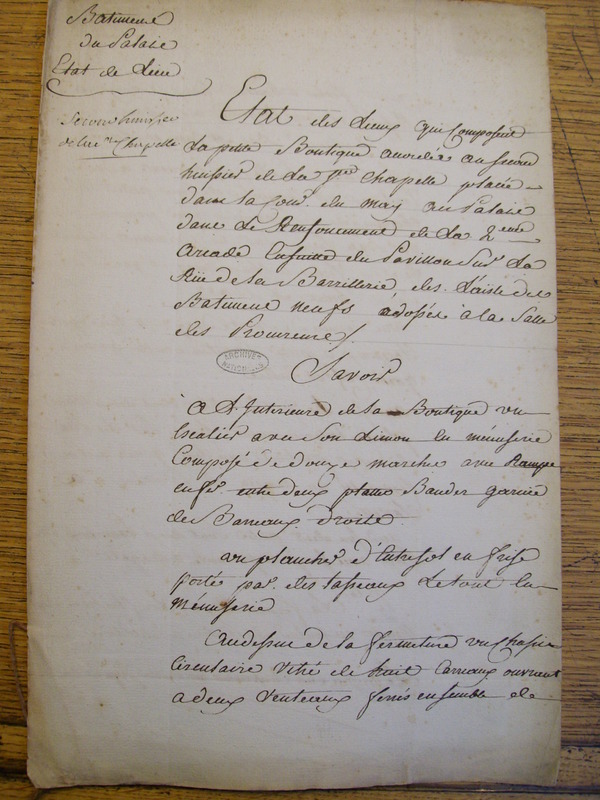 Batiment
du Palais
Etat de Lieu
Second huissier
de la Ste Chapelle
Etat des Lieux qui Composent
La petite Boutique au
huissier de La Ste Chapelle placée
dans la Cour du may au Palais
dans Le Renfoncement de La 2eme
arcade Ensuitte du Pavillon Sur La
Rüe de la Barrillerie des
Batiment neufs adossée à la Salle
des Procureurs /.
ARCHIVES NATIONALES
Savoir
A L'Interieure de la Boutique un
Escalier avec Son Limon En ménuserie
Composé de douze marche avec Rampe
en fer entre deux platte Bandes garnie
de Barreaux droite
un plancher d'Entresol en frise
portée par des tasseaux Le tout En
Ménuserie
Audessus de la fermeture un Chassis
Circulaire Vitré de huit Carreaux ouvrant
a deux Venteaux ferrés ensemble de